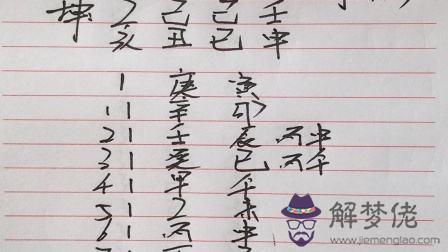 坤 乙 己 己 壬
亥 丑 巳 申
1 庚 寅
11 辛 卯
21 壬 辰 丙申
31 癸 巳 丙午
41 甲 午
51 乙 未
61 丙 申
解梦佬
www.jiemenglao.com